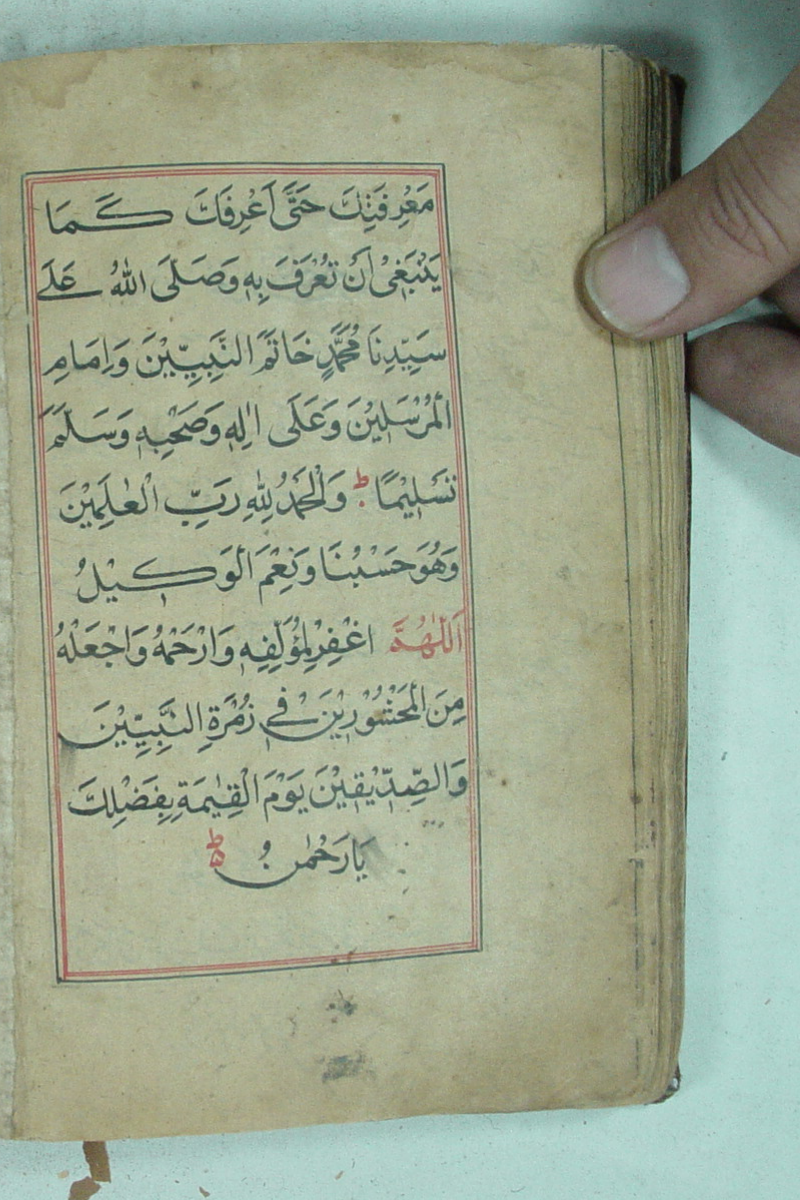 مَعْرِفَتِكَ حَتَّى أَعْرِفَكَ كَمَا
يَنْبَغِىْ أَنْ تُعْرَفَ بِهٖ وَصَلَّى اللّٰهُ عَلَى
سَيِّدِنَا مُحَمَّدٍ خَاتَمِ النَّبِيِّيْنَ وَاِمَامِ
الْمُرْسَلِيْنَ وَعَلَى اٰلِهٖ وَصَحْبِهٖ وَسَلَّمَ
تَسْلِيْمًا ط وَالْحَمْدُ لِلّٰهِ رَبِّ الْعٰلَمِيْنَ
وَهُوَ حَسْبُنَا وَنِعْمَ الْوَكِيْلُ
اَللّٰهُمَّ اغْفِرْ لِمُؤَلِّفِهٖ وَارْحَمْهُ وَاجْعَلْهُ
مِنَ الْمَحْشُوْرِيْنَ فِيْ زُمْرَةِ النَّبِيِّيْنَ
وَالصِّدِّيْقِيْنَ يَوْمَ الْقِيٰمَةِ بِفَضْلِكَ
يَا رَحْمٰنُ